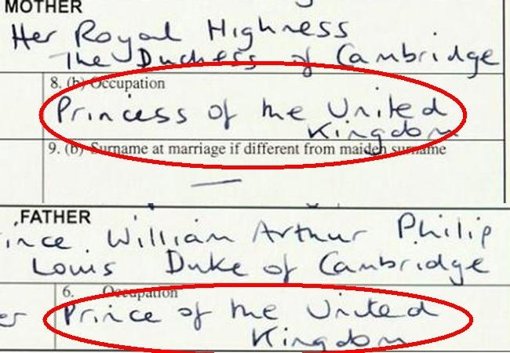 MOTHER
Her Royal Highness
The Duchess of Cambridge
8. (b) Occupation
Princess of the United
Kingdom
9. (b) Surname at marriage if different from maiden surname
—
FATHER
William Arthur Philip
Louis Duke of Cambridge
6. Occupation
Prince of the United
Kingdom